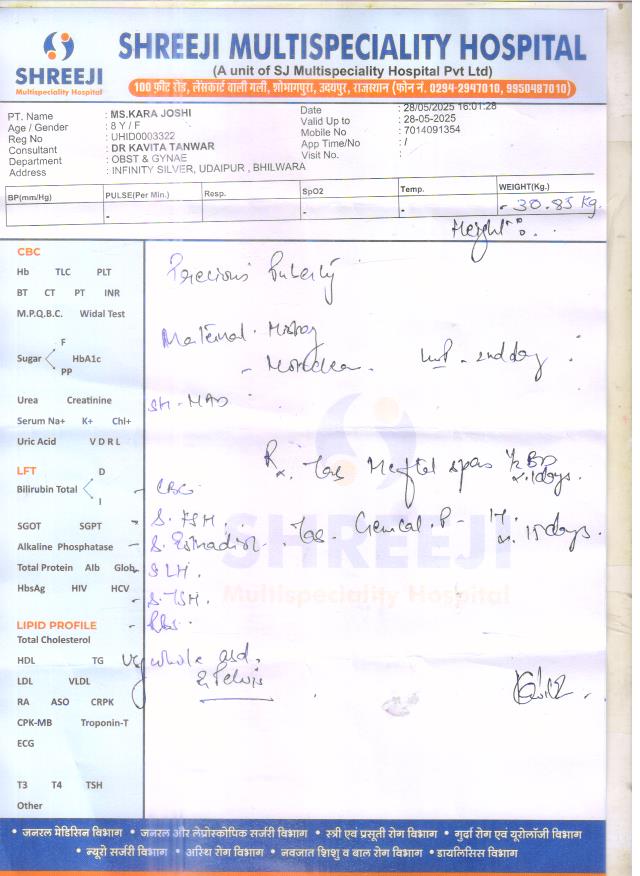 SHREEJI
Multispeciality Hospital
SHREEJI MULTISPECIALITY HOSPITAL
(A unit of SJ Multispeciality Hospital Pvt Ltd)
100 फ़ीट रोड़, लेंसकार्ट वाली गली, शोभागपुरा, उदयपुर, राजस्थान (फोन नं. 0294-2947010, 9950487010)
PT. Name : MS.KARA JOSHI Date : 28/05/2025 16:01:28
Age / Gender : 8 Y / F Valid Up to : 28-05-2025
Reg No : UHID0003322 Mobile No : 7014091354
Consultant : DR KAVITA TANWAR App Time/No : /
Department : OBST & GYNAE Visit No. :
Address : INFINITY SILVER, UDAIPUR , BHILWARA
BP(mm/Hg) PULSE(Per Min.) Resp. SpO2 Temp. WEIGHT(Kg.)
- - - - 30.85 Kg.
Height :
CBC
Hb TLC PLT
Precious Puberty
BT CT PT INR
M.P.Q.B.C. Widal Test
Maternal. History
F
Sugar HbA1c
PP
- 2nd day
Urea Creatinine
Serum Na+ K+ Chl+
Uric Acid V D R L
Rx. Tab Meftal spas 1/2 BD
LFT
D
Bilirubin Total
I
- CBC.
SGOT SGPT - S. FSH.
Alkaline Phosphatase - S. Estradiol.
x 15 days.
Total Protein Alb Glob. S LH.
HbsAg HIV HCV - S. TSH.
SHREEJI
Multispeciality Hospital
LIPID PROFILE - RBS.
Total Cholesterol
HDL TG whole abd.
LDL VLDL & Pelvis
RA ASO CRPK
CPK-MB Troponin-T
ECG
T3 T4 TSH
Other
• जनरल मेडिसिन विभाग • जनरल और लेप्रोस्कोपिक सर्जरी विभाग • स्त्री एवं प्रसूती रोग विभाग • गुर्दा रोग एवं यूरोलॉजी विभाग
• न्यूरो सर्जरी विभाग • अस्थि रोग विभाग • नवजात शिशु व बाल रोग विभाग • डायलिसिस विभाग